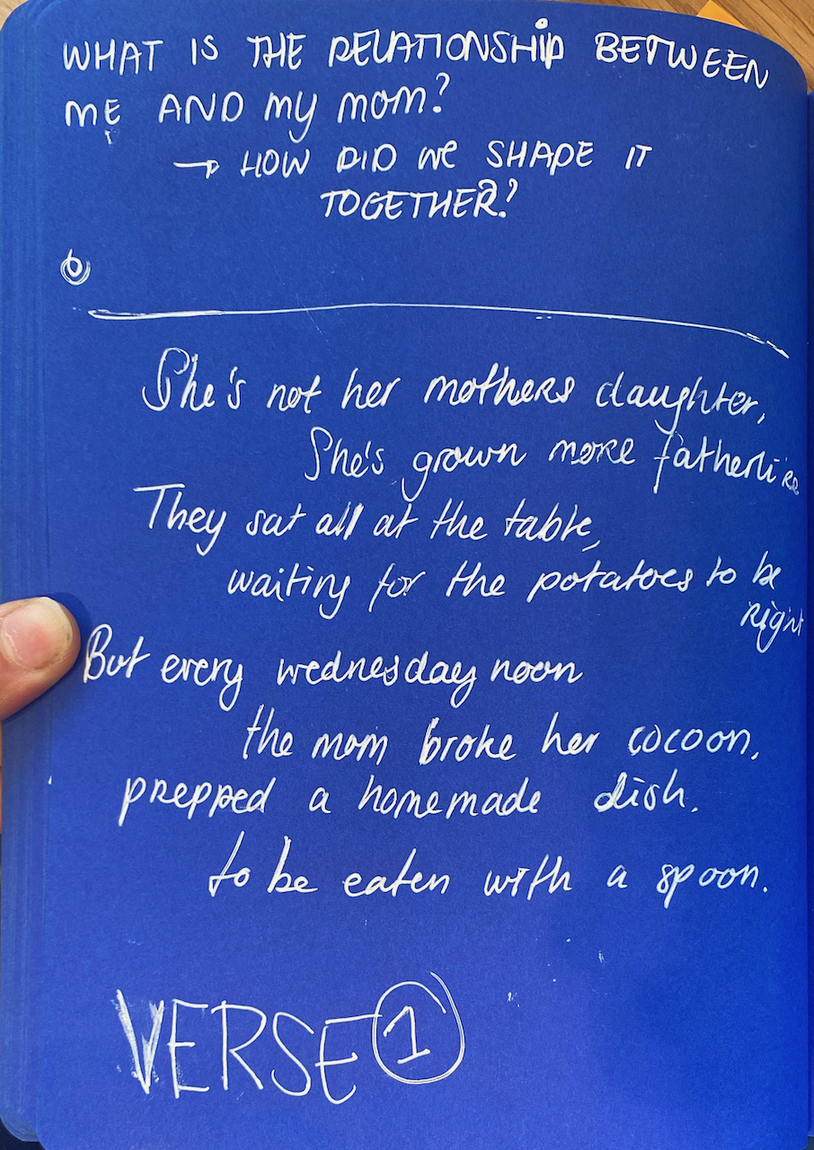 WHAT IS THE RELATIONSHIP BETWEEN
ME AND my mom?
→ HOW DID WE SHAPE IT
TOGETHER?
She's not her mothers daughter,
She's grown more fatherlike
They sat all at the table,
waiting for the potatoes to be
right
But every wednesday noon
the mom broke her cocoon,
prepped a homemade dish.
to be eaten with a spoon.
VERSE 1